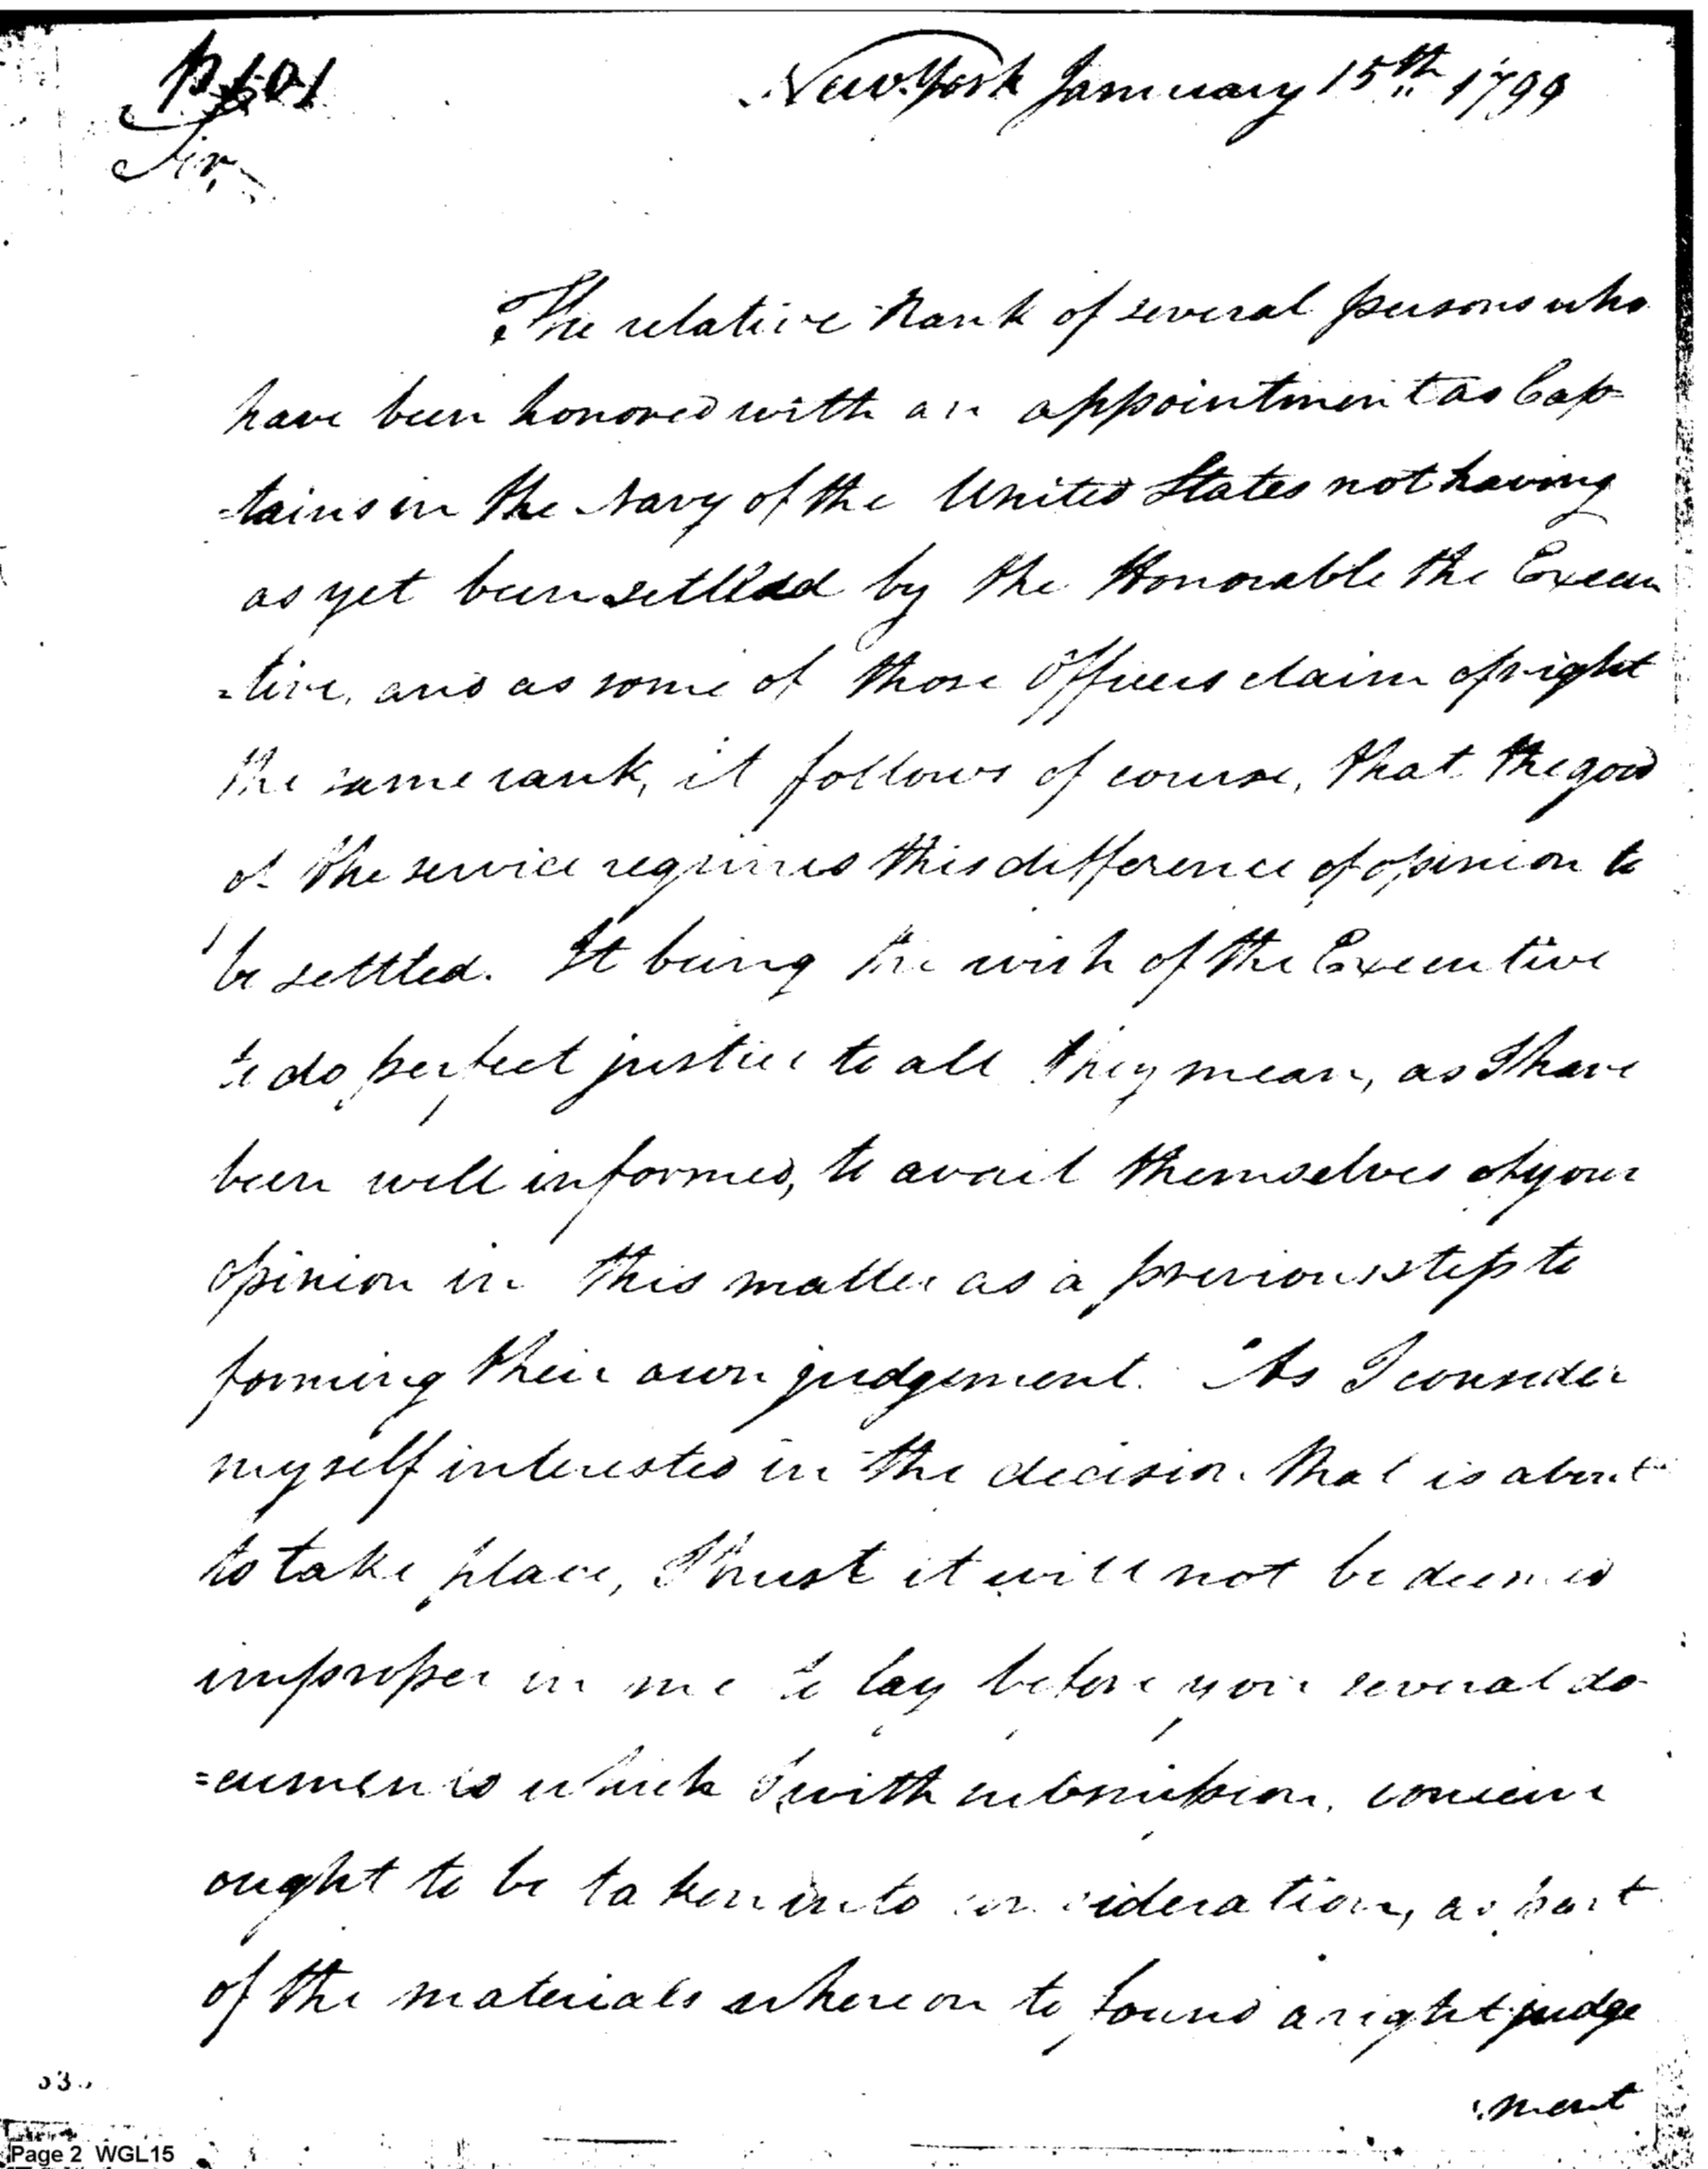 p 101
New York January 15th 1799
Sir,
The relative Rank of several persons who
have been honored with an appointment as Cap-
=tains in the Navy of the United States not having
as yet been settled by the Honorable the Execu
=tive, and as some of those Officers claim of right
the same rank, it follows of course, that the good
of the service requires this difference of opinion to
be settled. It being the wish of the Executive
to do perfect justice to all they mean, as I have
been well informed, to avail themselves of your
opinion in this matter as a previous step to
forming their own judgement. As I consider
myself interested in the decision that is about
to take place, I trust it will not be deemed
improper in me to lay before you several do-
=cuments which I with submission, conceive
ought to be taken into consideration, as part
of the materials whereon to found a right judge
ment
Page 2 WGL15